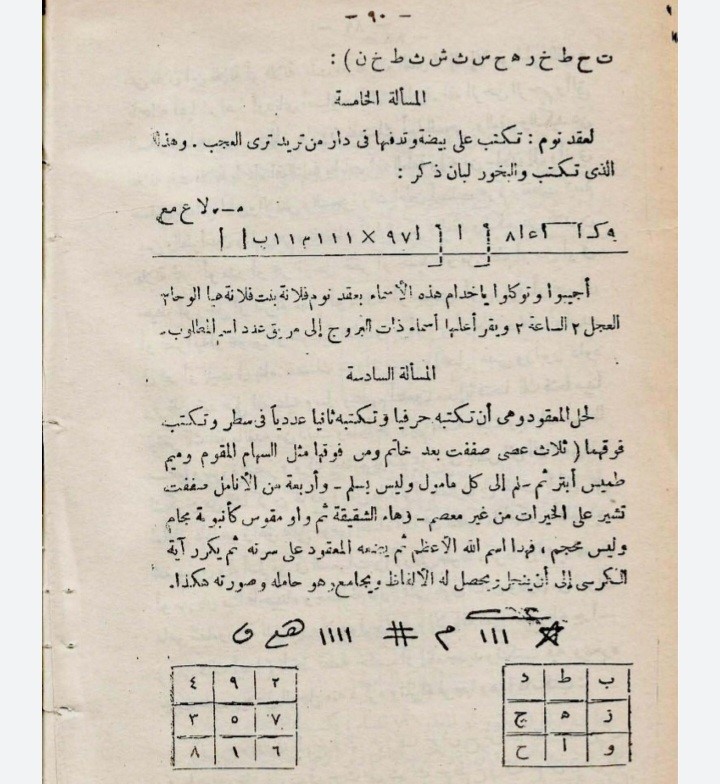 - ٩٠ -
ت ح ط خ ر ه ح س ث ش ث ط خ ن ) :
المسألة الخامسة
لعقد نوم : تكتب على بيضة وتدفنها فى دار من تريد ترى العجب . وهذا
الذى تكتب والبخور لبان ذكر :
لاع مع
أجيبوا وتوكلوا ياخدام هذه الأسماء بعقد نوم فلانة بنت فلانة هيا الوحا ٢
العجل ٢ الساعة ٢ ويقرأ عليها أسماء ذات البروج إلى مريق عدد اسم المطلوب .
المسألة السادسة
لحل المعقود وهى أن تكتبه حرفيا وتكتبه ثانيا عددياً فى سطر وتكتب
فوقهما ( ثلاث عصى صففت بعد خاتم ومن فوقها مثل السهام المقوم وميم
طميس أبتر ثم سلم إلى كل مامول وليس بسلم - وأربعة من الأنامل صففت
تشير على الخيرات من غير معصم - وهاء الشقيقة ثم واو مقوس كأنبوبة بحام
وليس محجم ، فهذا اسم الله الأعظم ثم يضعه المعقود على سرته ثم يكرر آية
الكرسى إلى أن ينحل ويحصل له الألفاظ ويجامع وهو حامله وصورته هكذا .
ااا م # اااا هـ و
ب ط د ٢ ٩ ٤
ز ه ج ٧ ٥ ٣
و ا ح ٦ ١ ٨